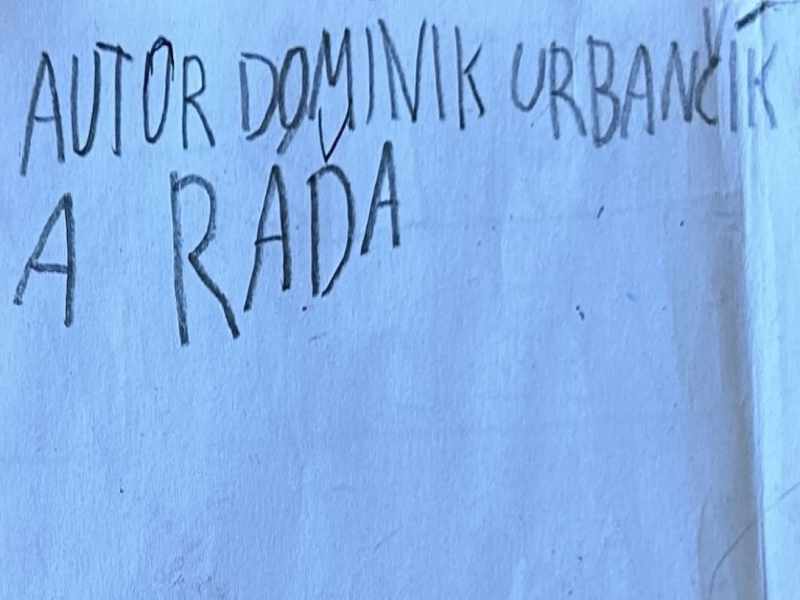 AUTOR DOMINIK URBANČÍK
A RAĎA